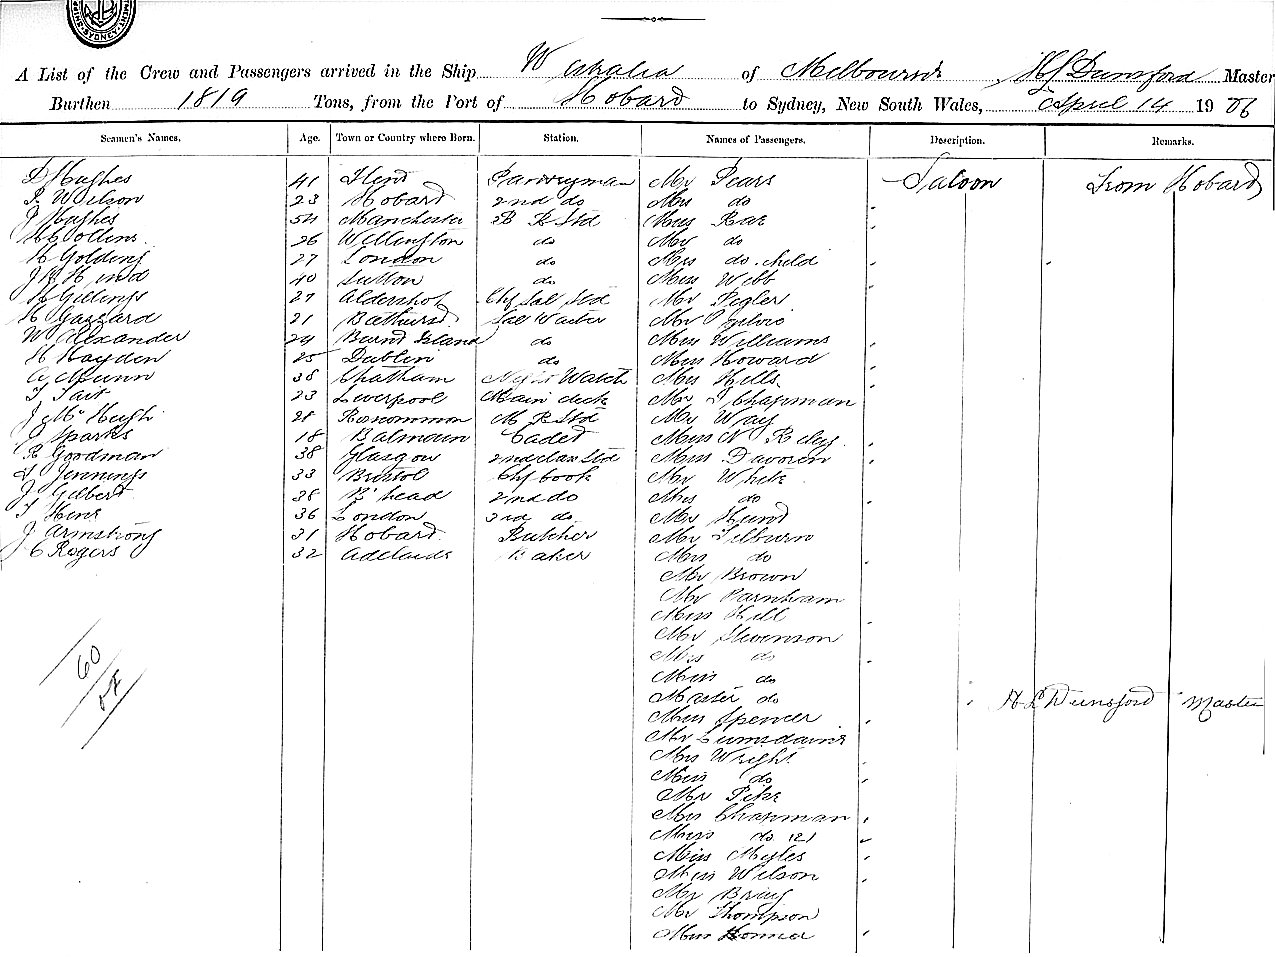 SYDNEY
A List of the Crew and Passengers arrived in the Ship Westralia of Melbourne H L Dunsford Master
Burthen 1819 Tons, from the Port of Hobard to Sydney, New South Wales, April 14 1906
Seamen's Names. Age. Town or Country where Born. Station. Names of Passengers. Description. Remarks.
D Hughes 41 Flint Pantryman Mr Pears Saloon From Hobard
P. Wilson 23 Hobard 2nd do Mrs do
J Hughes 54 Manchester B R Std Miss Rae
H Collins 26 Wellington do Mr do
H Golding 27 London do Mrs do child
J H Hind 40 Sutton do Miss Webb
H Gillings 27 Aldershot Chf Sal Std Mr Pegler
H Gazzard 21 Bathurst Sal Waiter Mr
W Alexander 29 Burnt Island do Miss Williams
H Hayden 25 Dublin do Miss Howard
38 Chatham Night Watch Mrs Hills
T Tait 23 Liverpool Main deck Mr J Chapman
J McHugh 28 Roscommon M R Std Mr Way
J Sparks 18 Balmain Cadet Miss N Riley
R Goodman 38 Glasgow 2nd class Std Miss Davoren
Jennings 33 Bristol Chf Cook Mr White
J Gilbert 38 B'head 2nd do Mrs do
T Hine 36 London 3rd do Mr Hunt
J Armstrong 31 Hobard Butcher Mr Tilburn
C Rogers 32 Adelaide Baker Mrs do
Mr Brown
Mr Farnham
Miss Hill
Mr Stevenson
Mrs do
Miss do
Master do H L Dunsford Master
Miss Spencer
Mr Lumsdaine
Mrs Wright
Miss do
Mr Pike
Mrs Chapman
Miss do (2)
Miss Myles
Miss Wilson
Mr Bring
Mr Thompson
Miss Honner
60